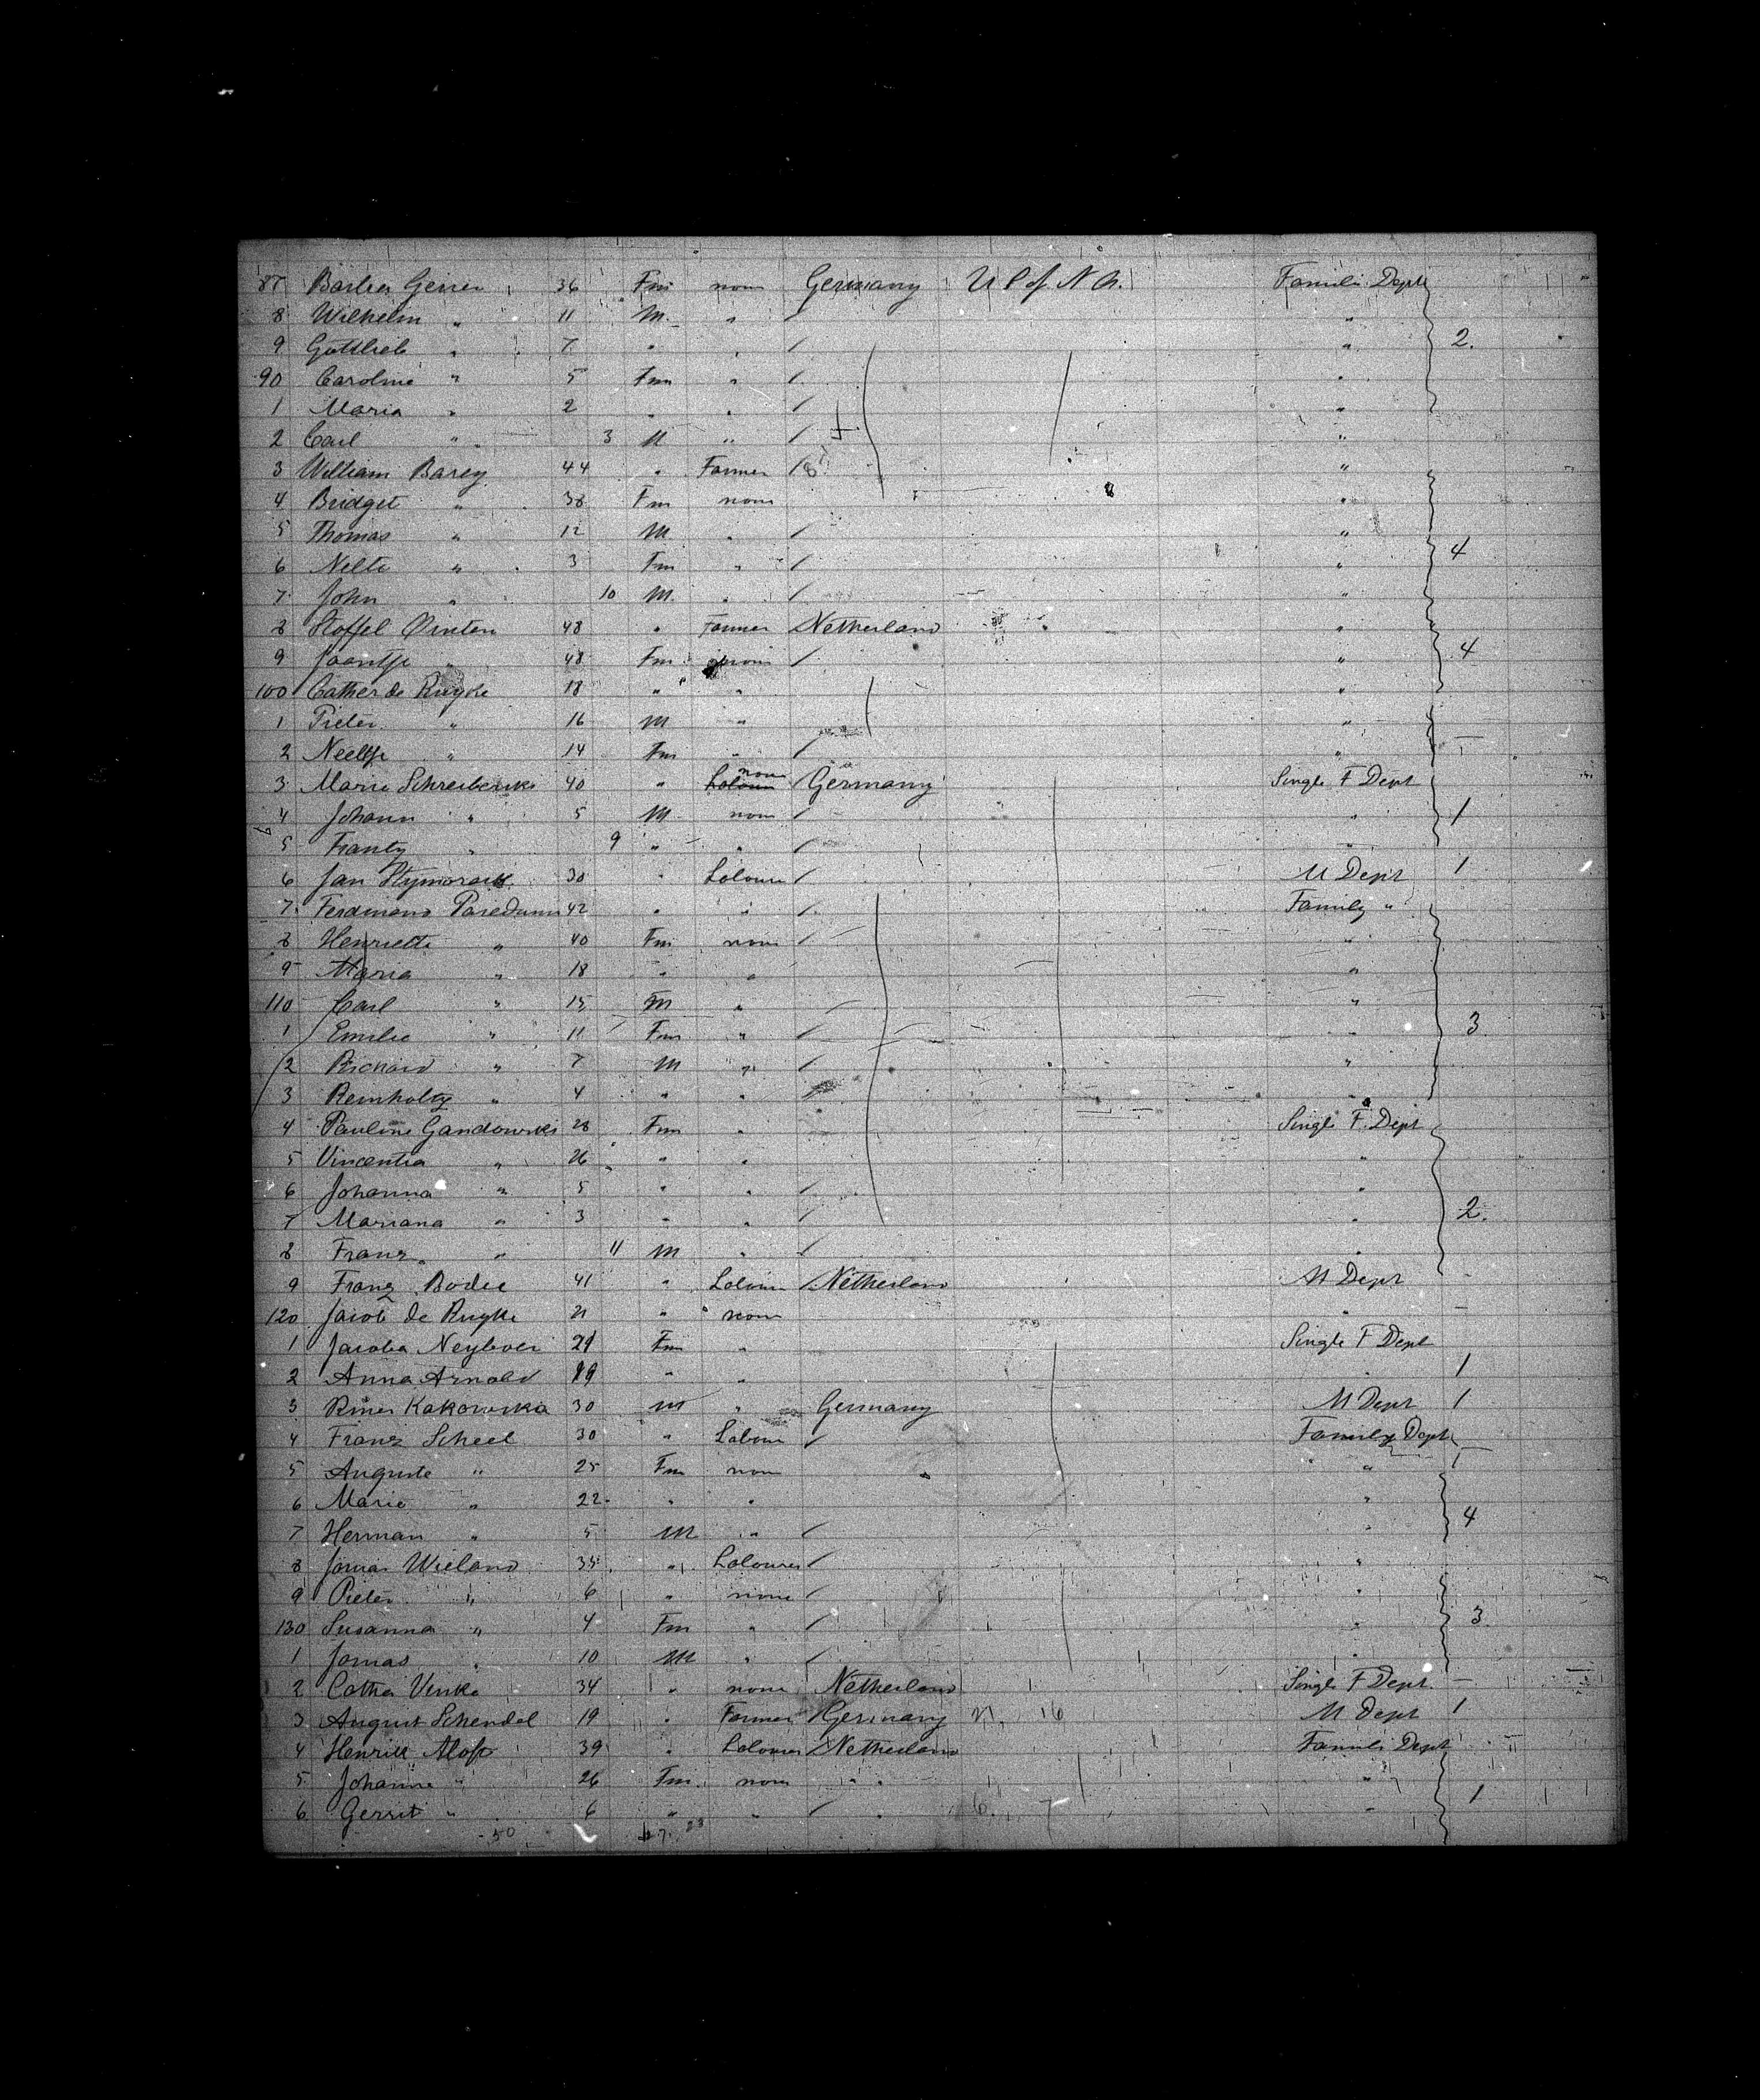 87 Barba Geiren 36 Fm none Germany U S of N A. Famili Dept
8 Wilhelm " 11 M. "  "
9 Gottlieb " 7 " " " 2.
90 Caroline " 5 Fm " "
1 Maria " 2 " " "
2 Carl " 3 M " "
3 William Barey 44 " Farmer "
4 Bridget " 38 Fm none "
5 Thomas " 12 M " "
6 Nelti " 3 Fm " " 4
7 John " 10 M. " "
8 Stoffel Quinten 48 " Farmer Netherland "
9 Jaantje " 48 Fm none " 4
100 Cather de Ruyke 18 " " "
1 Pieter " 16 M " "
2 Neeltje " 14 Fm " "
3 Marie Schreiberik 40 " none Germany Single F Dept
4 Johann " 5 M none " 1
5 Frantz " 9 " " "
6 Jan 30 " Labour M Dept 1
7 Ferdinand Paredum 42 " " Family "
8 Henriette " 40 Fm none "
9 Maria " 18 " " "
110 Carl " 15 M " "
1 Emilie " 11 Fm " " 3
2 Richard " 7 M " "
3 Reinholtz " 4 " " "
4 Pauline Gandowski 28 Fm " Single F. Dept
5 Vincentia " 26 " " "
6 Johanna " 5 " " "
7 Mariana " 3 " " " 2.
8 Franz " 11 M " "
9 Franz Bodie 41 " Labour Netherland M Dept
120 Jacob de Ruyke 21 " none "
1 Jacoba Neyboer 21 Fm " Single F Dept
2 Anna Arnold 19 " " " 1
3 Kakowska 30 M " Germany M Dept 1
4 Franz Scheel 30 " Labour Family Dept
5 Auguste " 25 Fm none "
6 Marie " 22 " " "
7 Herman " 5 M " " 4
8 Jomas Wieland 35 " Labourer "
9 Pieter " 6 " none "
130 Susanna " 4 Fm " " 3
1 Jomas " 10 M " "
2 Catha Vinke 34 " none Netherland Single F Dept.
3 August Schendel 19 " Farmer Germany 16 M Dept 1
4 Henrik Alofs 39 " Labourer Netherland Famili Dept
5 Johanne " 26 Fm none " "
6 Gerrit " 6 " " " 1
50